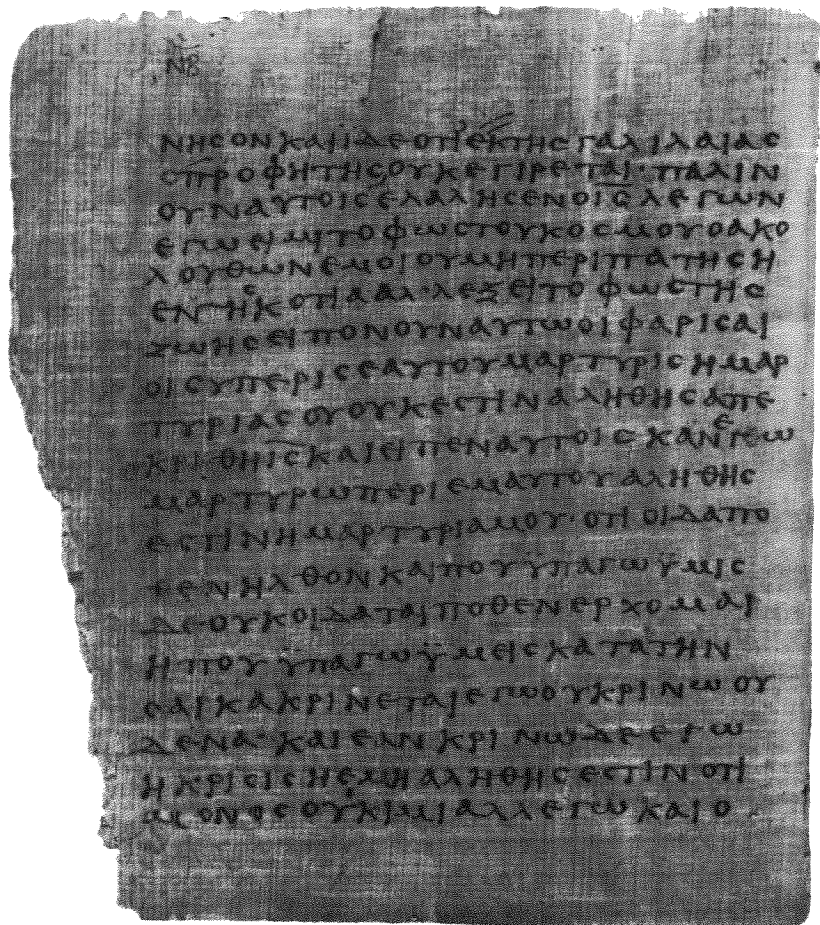 ΝΒ
ΝΗϹΟΝΚΑΙΪΔΕΟΤΙΕΚΤΗϹΓΑΛΙΛΑΙΑϹ
ΟΠΡΟΦΗΤΗϹΟΥΚΕΓΙΡΕΤΑΙ·ΠΑΛΙΝ
ΟΥΝΑΥΤΟΙϹΕΛΑΛΗϹΕΝΟΙ̅Ϲ̅ΛΕΓΩΝ
ΕΓΩΕΙΜΙΤΟΦΩϹΤΟΥΚΟϹΜΟΥΟΑΚΟ
ΛΟΥΘΩΝΕΜΟΙΟΥΜΗΠΕΡΙΠΑΤΗϹΗ
ΕΝΤΗϹΚΟΤΙΑΑΛΛΕΞΕΙΤΟΦΩϹΤΗϹ
ΖΩΗϹΕΙΠΟΝΟΥΝΑΥΤΩΟΙΦΑΡΙϹΑΙ
ΟΙϹΥΠΕΡΙϹΕΑΥΤΟΥΜΑΡΤΥΡΙϹΗΜΑΡ
ΤΥΡΙΑϹΟΥΟΥΚΕϹΤΙΝΑΛΗΘΗϹΑΠΕ
ΚΡΙΘΗΙ̅Ϲ̅ΚΑΙΕΙΠΕΝΑΥΤΟΙϹΚΑΝΕΓΩ
ΜΑΡΤΥΡΩΠΕΡΙΕΜΑΥΤΟΥΑΛΗΘΗϹ
ΕϹΤΙΝΗΜΑΡΤΥΡΙΑΜΟΥ·ΟΤΙΟΙΔΑΠΟ
ΘΕΝΗΛΘΟΝΚΑΙΠΟΥΫΠΑΓΩΫΜΙϹ
ΔΕΟΥΚΟΙΔΑΤΑΙΠΟΘΕΝΕΡΧΟΜΑΙ
ΗΠΟΥΥΠΑΓΩΫΜΕΙϹΚΑΤΑΤΗΝ
ϹΑΡΚΑΚΡΙΝΕΤΑΙΕΓΩΟΥΚΡΙΝΩΟΥ
ΔΕΝΑ·ΚΑΙΕΑΝΚΡΙΝΩΔΕΕΓΩ
ΗΚΡΙϹΙϹΗΕΜΗΑΛΗΘΗϹΕϹΤΙΝΟΤΙ
ΜΟΝΟϹΟΥΚΙΜΙΑΛΛΕΓΩΚΑΙΟ